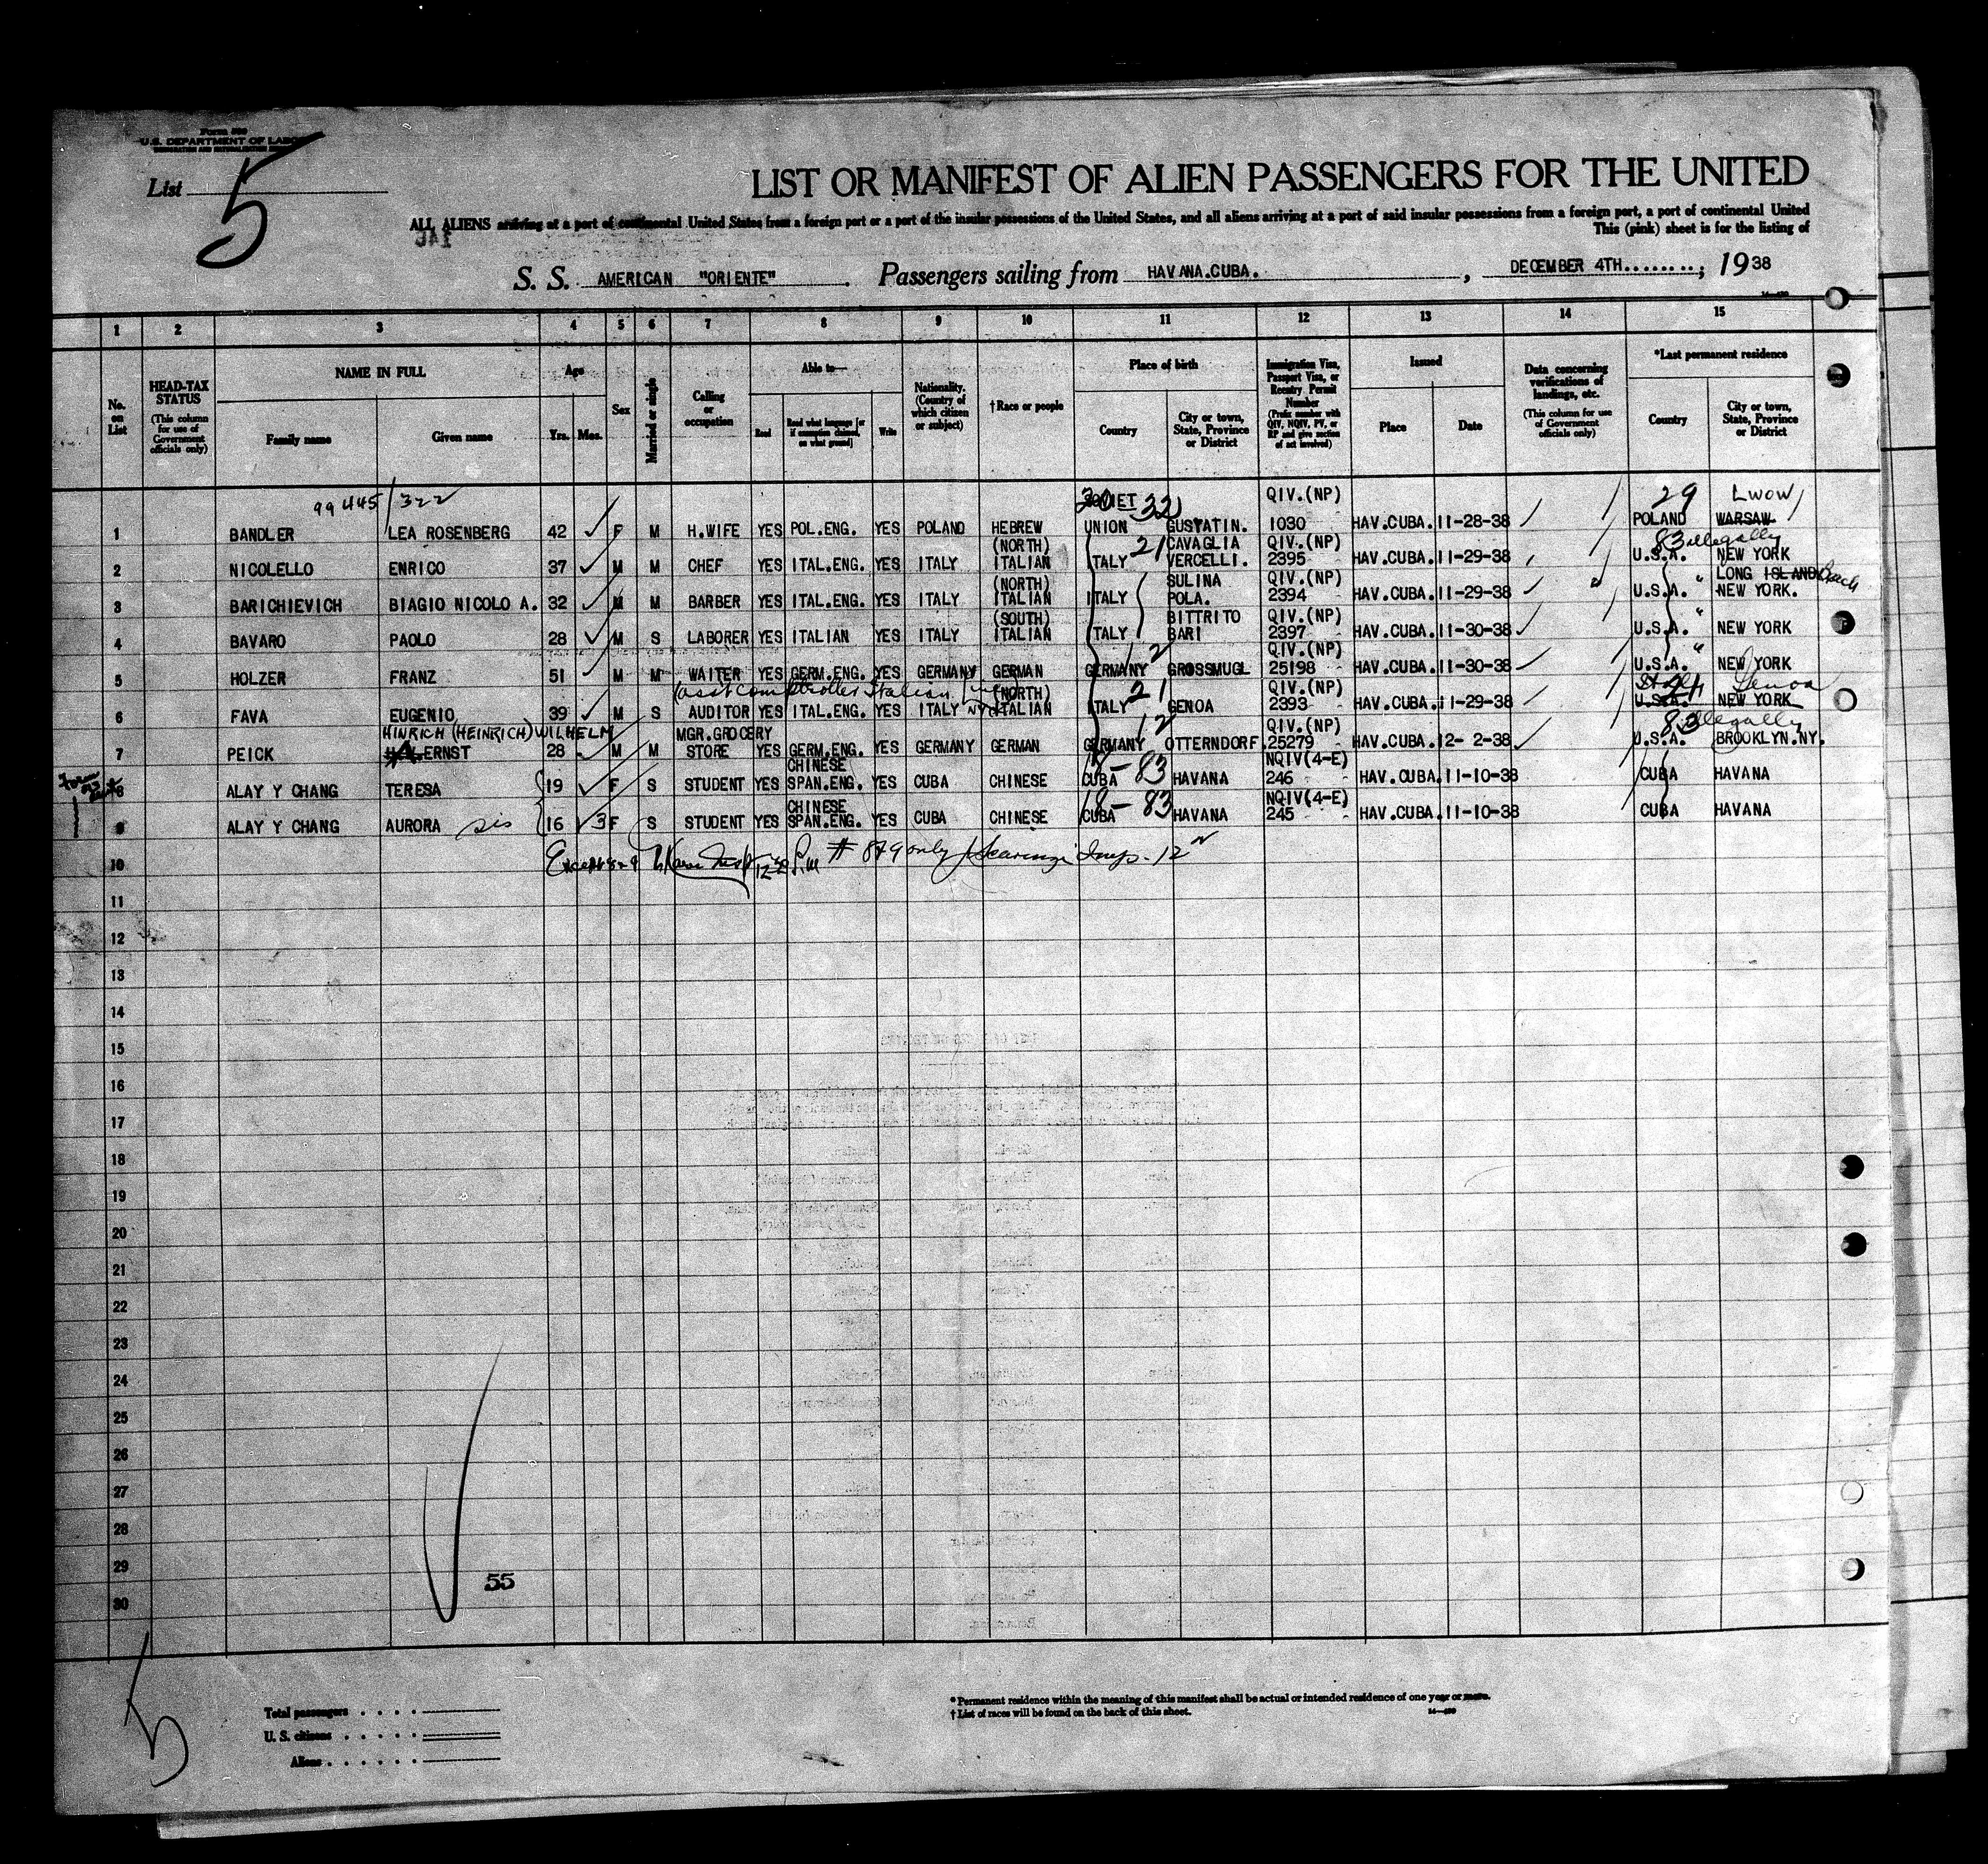 Form 500
U.S. DEPARTMENT OF LABOR
List 5
LIST OR MANIFEST OF ALIEN PASSENGERS FOR THE UNITED
ALL ALIENS arriving at a port of continental United States from a foreign port or a port of the insular possessions of the United States, and all aliens arriving at a port of said insular possessions from a foreign port, a port of continental United
This (pink) sheet is for the listing of
S. S. AMERICAN "ORIENTE" Passengers sailing from HAVANA.CUBA. , DECEMBER 4TH........, 1938
1 2 3 4 5 6 7 8 9 10 11 12 13 14 15
No. on List
HEAD-TAX STATUS (This column for use of Government officials only)
NAME IN FULL
Family name Given name
Age Yrs. Mos.
Sex
Married or single
Calling or occupation
Able to—
Read Read what language [or if exemption claimed, on what ground] Write
Nationality. (Country of which citizen or subject)
†Race or people
Place of birth
Country City or town, State, Province or District
Immigration Visa, Passport Visa, or Reentry Permit Number (Prefix number with QIV, NQIV, PV, or RP and give section of act involved)
Issued
Place Date
Data concerning verifications of landings, etc. (This column for use of Government officials only)
*Last permanent residence
Country City or town, State, Province or District
99445/322 SOVIET 32 QIV.(NP) 29 LWOW
1 BANDLER LEA ROSENBERG 42 F M H.WIFE YES POL.ENG. YES POLAND HEBREW UNION GUSTATIN. 1030 HAV.CUBA. 11-28-38 POLAND WARSAW
(NORTH) 21 CAVAGLIA QIV.(NP) 83 illegally
2 NICOLELLO ENRICO 37 M M CHEF YES ITAL.ENG. YES ITALY ITALIAN ITALY VERCELLI. 2395 HAV.CUBA. 11-29-38 U.S.A. NEW YORK
(NORTH) SULINA QIV.(NP) " LONG ISLAND Beach
3 BARICHIEVICH BIAGIO NICOLO A. 32 M M BARBER YES ITAL.ENG. YES ITALY ITALIAN ITALY POLA. 2394 HAV.CUBA. 11-29-38 U.S.A. NEW YORK.
(SOUTH) BITTRITO QIV.(NP) "
4 BAVARO PAOLO 28 M S LABORER YES ITALIAN YES ITALY ITALIAN ITALY BARI 2397 HAV.CUBA. 11-30-38 U.S.A. NEW YORK
12 QIV.(NP) "
5 HOLZER FRANZ 51 M M WAITER YES GERM.ENG. YES GERMANY GERMAN GERMANY GROSSMUGL 25198 HAV.CUBA. 11-30-38 U.S.A. NEW YORK
(asst comptroller Italian (NORTH) 21 QIV.(NP) Italy 21 Genoa
6 FAVA EUGENIO 39 M S AUDITOR YES ITAL.ENG. YES ITALY ITALIAN ITALY GENOA 2393 HAV.CUBA. 11-29-38 U.S.A. NEW YORK
HINRICH (HEINRICH) WILHELM MGR.GROCERY 12 QIV.(NP) 83 illegally
7 PEICK ERNST 28 M M STORE YES GERM.ENG. YES GERMANY GERMAN GERMANY OTTERNDORF 25279 HAV.CUBA. 12- 2-38 U.S.A. BROOKLYN.NY.
CHINESE 18-83 NQIV(4-E)
8 ALAY Y CHANG TERESA 19 F S STUDENT YES SPAN.ENG. YES CUBA CHINESE CUBA HAVANA 246 HAV.CUBA. 11-10-38 CUBA HAVANA
CHINESE 18-83 NQIV(4-E)
9 ALAY Y CHANG AURORA sis 16 3 F S STUDENT YES SPAN.ENG. YES CUBA CHINESE CUBA HAVANA 245 HAV.CUBA. 11-10-38 CUBA HAVANA
10 Except 8-9 # 8+9 only Insp.
11
12
13
14
15
16
17
18
19
20
21
22
23
24
25
26
27
28
29
30
55
5
Total passengers
U. S. citizens
Aliens
* Permanent residence within the meaning of this manifest shall be actual or intended residence of one year or more.
† List of races will be found on the back of this sheet.